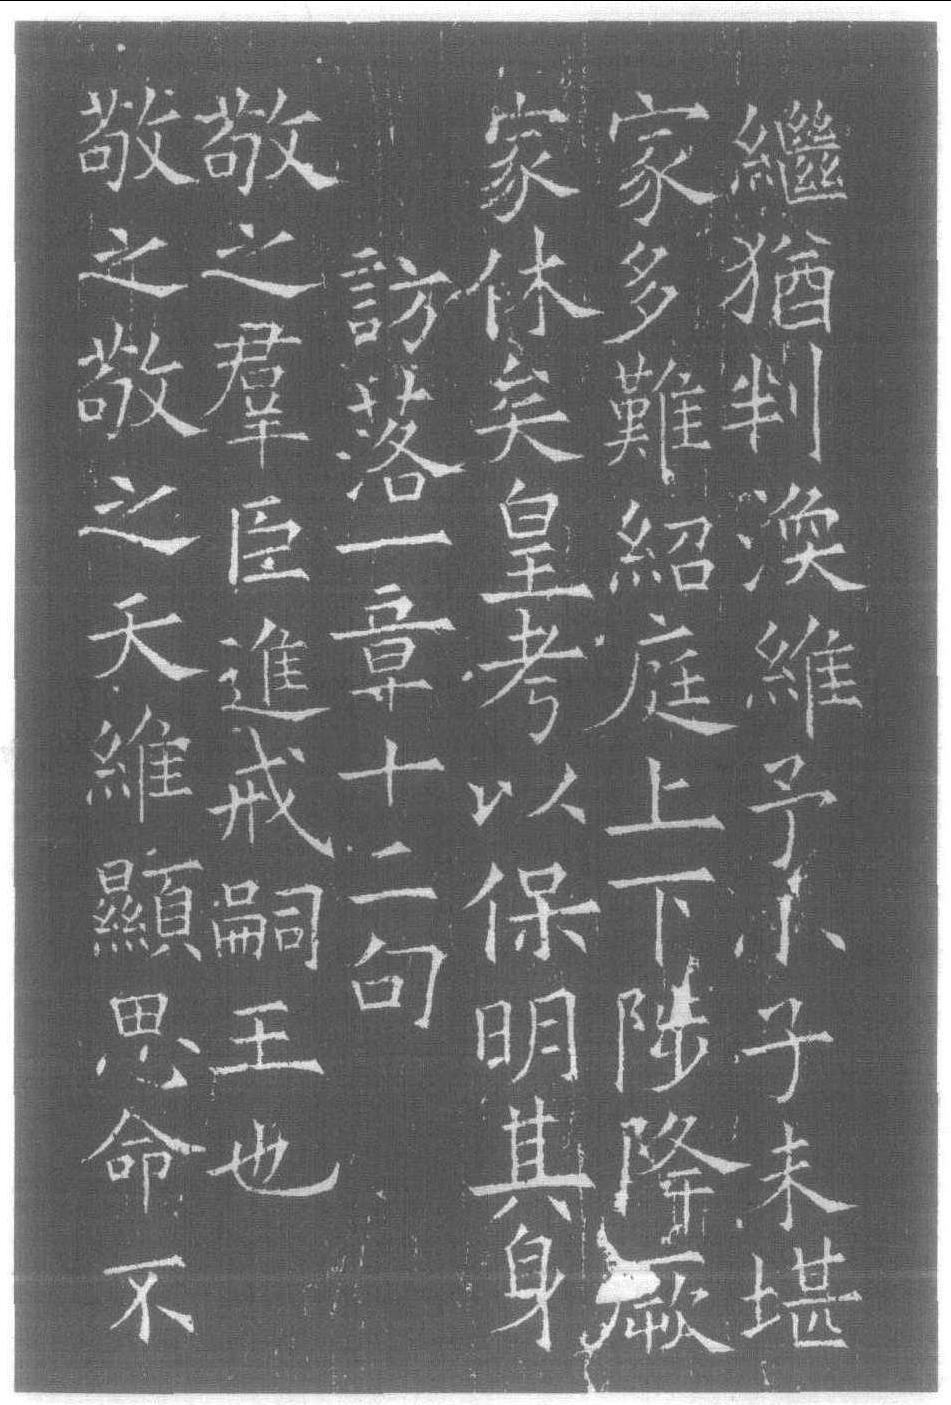 繼猶判渙維予小子未堪
家多難紹庭上下陟降厥
家休矣皇考以保明其身
訪落一章十二句
敬之羣臣進戒嗣王也
敬之敬之天維顯思命不